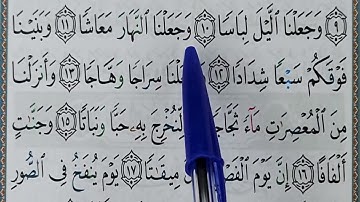 ٩ وَجَعَلْنَا ٱلَّيْلَ لِبَاسًا ١٠ وَجَعَلْنَا ٱلنَّهَارَ مَعَاشًا ١١ وَبَنَيْنَا
فَوْقَكُمْ سَبْعًا شِدَادًا ١٢ سِرَاجًا وَهَّاجًا ١٣ وَأَنزَلْنَا
مِنَ ٱلْمُعْصِرَٰتِ مَآءً ثَجَّاجًا لِّنُخْرِجَ بِهِۦ حَبًّا وَنَبَاتًا ١٥ وَجَنَّٰتٍ
أَلْفَافًا ١٦ إِنَّ يَوْمَ مِيقَٰتًا ١٧ يَوْمَ يُنفَخُ فِى ٱلصُّورِ